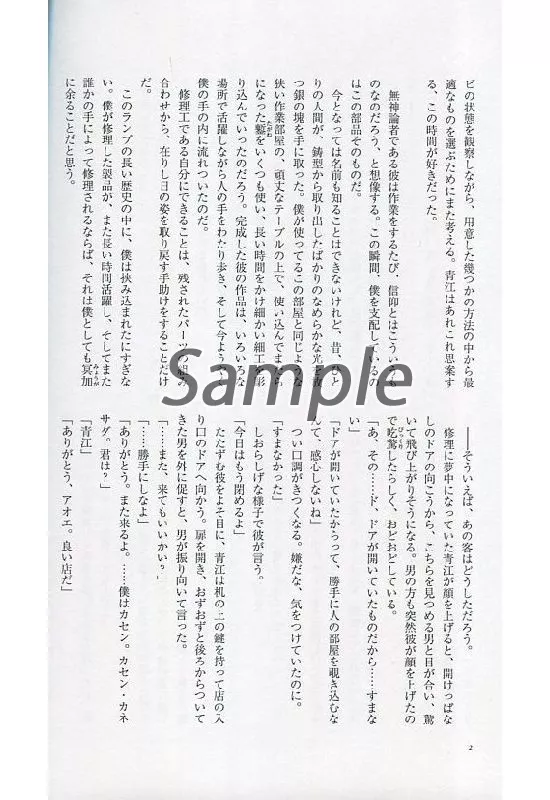 ビの状態を観察しながら、用意した幾つかの方法の中から最
適なものを選ぶためにまた考える。青江はあれこれ思案す
る、この時間が好きだった。
無神論者である彼は作業をするたび、信仰とはこういうも
のなのだろう、と想像する。この瞬間、僕を支配しているの
はこの部品そのものだ。
今となっては名前も知ることはできないけれど、昔、ひと
りの人間が、鋳型から取り出したばかりのなめらかな光を放
つ銀の塊を手に取った。僕が使ってるこの部屋と同じような
狭い作業部屋の、頑丈なテーブルの上で、使い込んでまら
になった鏨をいくつも使い、長い時間をかけ細かい細工を彫
り込んでいったのだろう。完成した彼の作品は、いろいろな
場所で活躍しながら人の手をわたり歩き、そして今ようやく
僕の手の内に流れついたのだ。
修理工である自分にできることは、残されたパーツの組み
合わせから、在りし日の姿を取り戻す手助けをすることだけ
だ。
このランプの長い歴史の中に、僕は挟み込まれたにすぎな
い。僕が修理した製品が、また長い時間活躍し、そしてまた
誰かの手によって修理されるならば、それは僕としても冥加
に余ることだと思う。
――そういえば、あの客はどうしただろう。
修理に夢中になっていた青江が顔を上げると、開けっぱな
しのドアの向こうから、こちらを見つめる男と目が合い、驚
いて飛び上がりそうになる。男の方も突然彼が顔を上げたの
で吃驚したらしく、おどおどしている。
「あ、その……ド、ドアが開いていたものだから……すまな
い」
「ドアが開いていたからって、勝手に人の部屋を覗き込むな
んて、感心しないね」
つい口調がきつくなる。嫌だな、気をつけていたのに。
「すまなかった」
しおらしげな様子で彼が言う。
「今日はもう閉めるよ」
たたずむ彼をよそ目に、青江は机の上の鍵を持って店の入
り口のドアへ向かう。扉を開き、おずおずと後ろからついて
きた男を外に促すと、男が振り向いて言った。
「……また、来てもいいかい？」
「……勝手にしなよ」
「ありがとう。また来るよ。……僕はカセン。カセン・カネ
サダ。君は？」
「青江」
「ありがとう、アオエ。良い店だ」
2
Sample